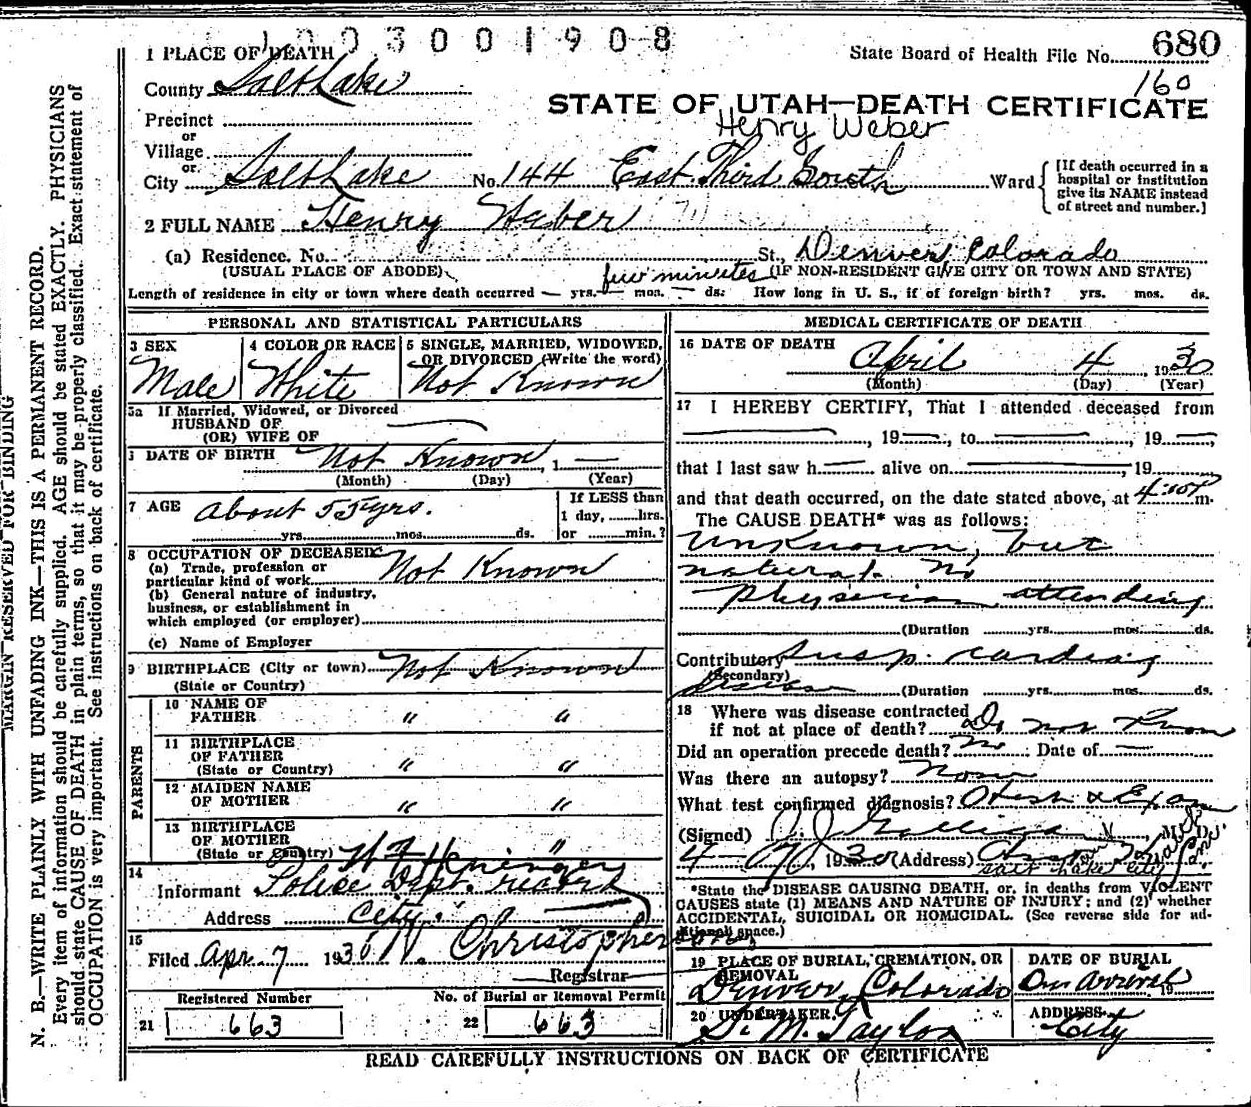 1003001908
1 PLACE OF DEATH
State Board of Health File No. 680
160
County Salt Lake
STATE OF UTAH—DEATH CERTIFICATE
Henry Weber
Precinct
or
Village
or
City Salt Lake No. 144 East Third South Ward
[If death occurred in a hospital or institution give its NAME instead of street and number.]
2 FULL NAME Henry Weber
(a) Residence. No. St., Denver, Colorado
(USUAL PLACE OF ABODE) (IF NON-RESIDENT GIVE CITY OR TOWN AND STATE)
few minutes
Length of residence in city or town where death occurred — yrs. — mos. — ds. How long in U. S., if of foreign birth? yrs. mos. ds.
PERSONAL AND STATISTICAL PARTICULARS
3 SEX
Male
4 COLOR OR RACE
White
5 SINGLE, MARRIED, WIDOWED, OR DIVORCED (Write the word)
Not Known
5a If Married, Widowed, or Divorced
HUSBAND OF
(OR) WIFE OF
DATE OF BIRTH Not Known, 1—
(Month) (Day) (Year)
7 AGE About 55 yrs.
yrs. mos. ds.
If LESS than
1 day, hrs.
or min.?
8 OCCUPATION OF DECEASED
(a) Trade, profession or
particular kind of work Not Known
(b) General nature of industry,
business, or establishment in
which employed (or employer)
(c) Name of Employer
9 BIRTHPLACE (City or town) Not Known
(State or Country)
PARENTS
10 NAME OF
FATHER " "
11 BIRTHPLACE
OF FATHER
(State or Country) " "
12 MAIDEN NAME
OF MOTHER " "
13 BIRTHPLACE
OF MOTHER
(State or Country) "
14
Informant Police Dept. record
Address City.
15
Filed Apr 7 1930 W. Christopherson
Registrar
Registered Number
21 663
No. of Burial or Removal Permit
22 663
MEDICAL CERTIFICATE OF DEATH
16 DATE OF DEATH
April 4 1930
(Month) (Day) (Year)
17 I HEREBY CERTIFY, That I attended deceased from
—, 19—, to —, 19—,
that I last saw h— alive on —, 19
and that death occurred, on the date stated above, at m.
The CAUSE DEATH* was as follows:
Unknown, but
natural. No
physician attending
(Duration yrs. mos. ds.
Contributory Susp. cardiac
(Secondary)
disease (Duration yrs. mos. ds.
18 Where was disease contracted
if not at place of death? Do not Know
Did an operation precede death? No Date of —
Was there an autopsy? None
What test confirmed diagnosis?
(Signed) M. D.
1930 (Address)
Salt Lake City
*State the DISEASE CAUSING DEATH, or, in deaths from VIOLENT
CAUSES state (1) MEANS AND NATURE OF INJURY; and (2) whether
ACCIDENTAL, SUICIDAL OR HOMICIDAL. (See reverse side for additional space.)
19 PLACE OF BURIAL, CREMATION, OR
REMOVAL
Denver, Colorado
DATE OF BURIAL
On arrival 19
20 UNDERTAKER
S. M. Taylor
ADDRESS
City
READ CAREFULLY INSTRUCTIONS ON BACK OF CERTIFICATE
MARGIN RESERVED FOR BINDING
N. B.—WRITE PLAINLY WITH UNFADING INK—THIS IS A PERMANENT RECORD.
Every item of information should be carefully supplied. AGE should be stated EXACTLY. PHYSICIANS
should state CAUSE OF DEATH in plain terms, so that it may be properly classified. Exact statement of
OCCUPATION is very important. See instructions on back of certificate.